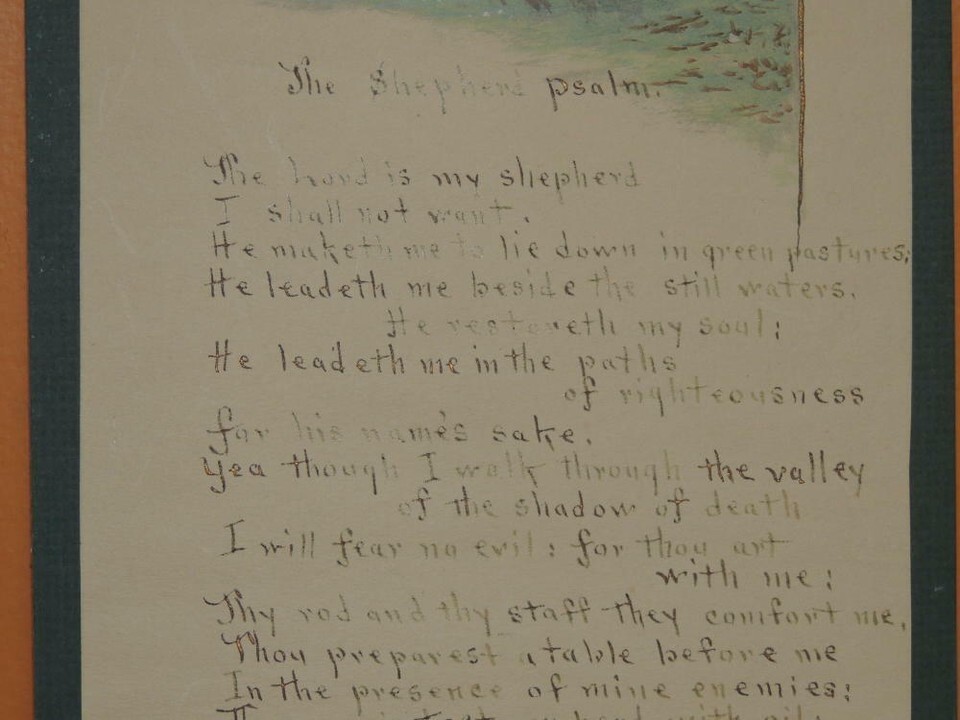 The Shepherd psalm.
The Lord is my shepherd
I shall not want.
He maketh me to lie down in green pastures;
He leadeth me beside the still waters.
He restoreth my soul;
He leadeth me in the paths
of righteousness
for his name's sake.
Yea though I walk through the valley
of the shadow of death
I will fear no evil: for thou art
with me:
Thy rod and thy staff they comfort me.
Thou preparest a table before me
In the presence of mine enemies: